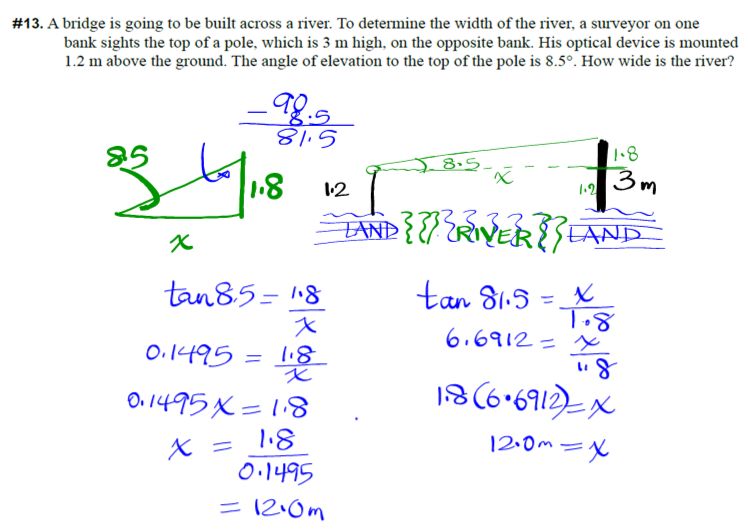 #13. A bridge is going to be built across a river. To determine the width of the river, a surveyor on one
bank sights the top of a pole, which is 3 m high, on the opposite bank. His optical device is mounted
1.2 m above the ground. The angle of elevation to the top of the pole is 8.5°. How wide is the river?
90
- 8.5
81.5
8.5
1.8
x
1.2
8.5
x
1.8
1.2
3 m
LAND RIVER LAND
tan 8.5 = 1.8/x
0.1495 = 1.8/x
0.1495x = 1.8
x = 1.8/0.1495
= 12.0m
tan 81.5 = x/1.8
6.6912 = x/1.8
1.8(6.6912) = x
12.0m = x